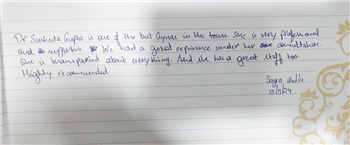 Dr Sunheeta Gupta is one of the best Gynae in the town. She is very professional
and supportive We had a great experience under her consultation.
She is transparent about everything. And she has a great staff too.
Highly recommended.